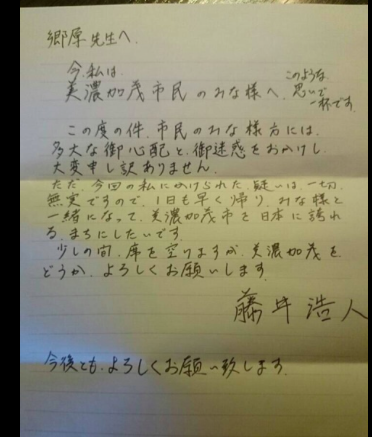 郷原先生へ
今、私は、
美濃加茂市民のみな様へ、このような
思いで
一杯です。
この度の件、市民のみな様方には、
多大な御心配と、御迷惑をおかけし、
大変申し訳ありません。
ただ、今回の私にかけられた、疑いは、一切、
無実ですので、1日も早く帰り、みな様と
一緒になって、美濃加茂市を日本に誇れ
る、まちにしたいです
少しの間、席を空けますが、美濃加茂を
どうか、よろしくお願いします。
藤井浩人
今後とも、よろしくお願い致します。